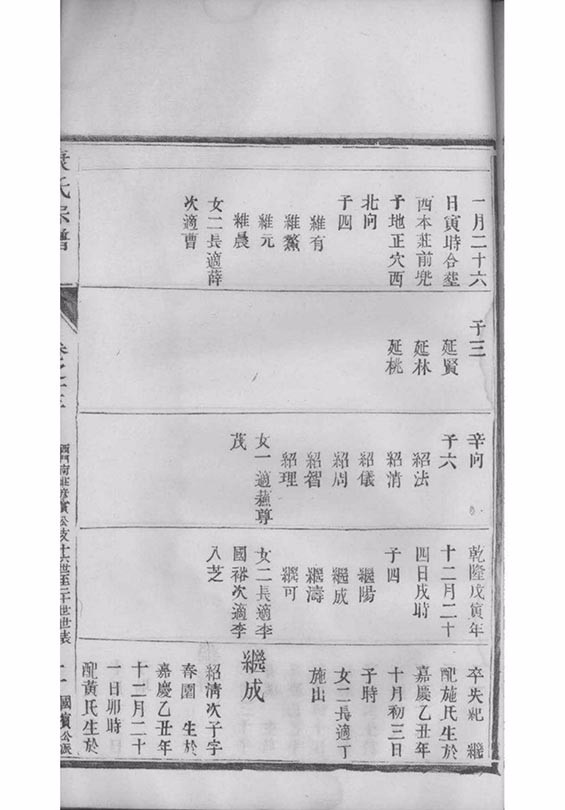 一月二十六
日寅時合塟
西本莊前兜
子地正穴西
北向
子四
維有
維鰲
維元
維晨
女二長適薛
次適曹
子三
延賢
延林
延桃
辛向
子六
紹法
紹清
紹儀
紹周
紹智
紹理
女一適蕪尊
茂
乾隆戊寅年
十二月二十
四日戌時
子四
繼陽
繼成
繼濤
繼可
女二長適李
國裕次適李
入芝
卒失祀 繼
配施氏生於
嘉慶乙丑年
十月初三日
子時
女二長適丁
施出
繼成
紹清次子字
春園 生於
嘉慶乙丑年
十二月二十
一日卯時
配黃氏生於
氏宗譜
卷之三
公支十六世至二十世世表
國賓公派